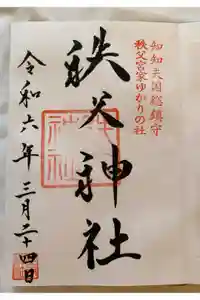 知知夫国総鎮守
秩父宮家ゆかりの社
秩父神社
令和六年三月二十四日